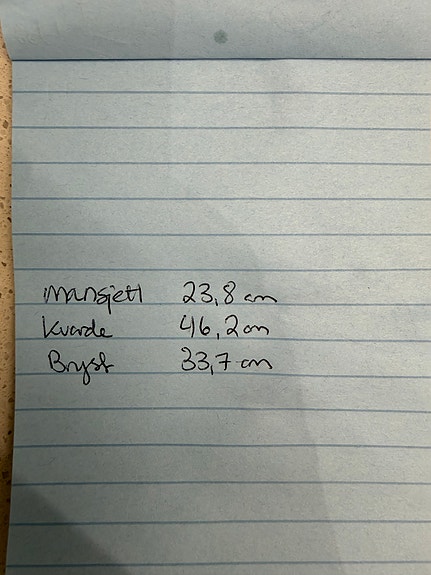 Mansjett 23,8 cm
Kvarde 46,2 cm
Bryst 33,7 cm